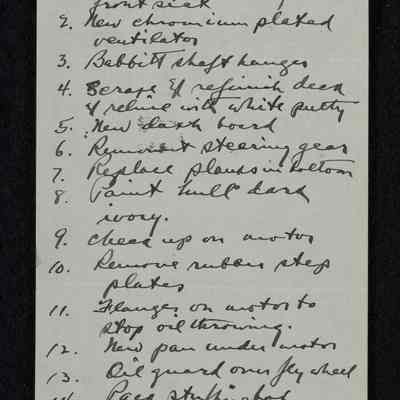 front seat
2. New chromium plated
ventilator
3. Babbitt shaft hanger
4. Scrape & refinish deck
& reline with white putty
5. New dash board
6. Remount steering gear
7. Replace planks in bottom
8. Paint hull dark
ivory.
9. Check up on motor
10. Remove rubber step
plates
11. Flanges on motor to
stop oil throwing.
12. New pan under motor
13. Oil guard over fly wheel
14. Pack stuffing box